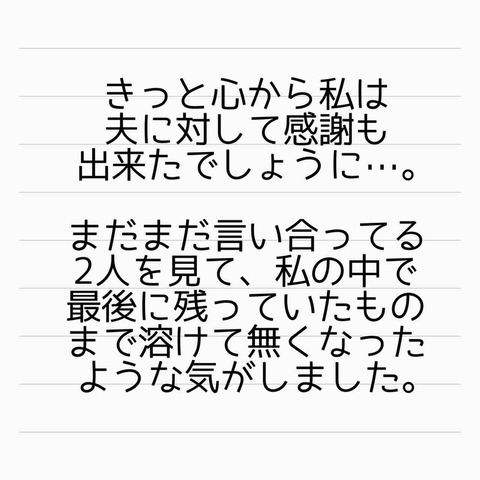 きっと心から私は
夫に対して感謝も
出来たでしょうに…。
まだまだ言い合ってる
2人を見て、私の中で
最後に残っていたもの
まで溶けて無くなった
ような気がしました。